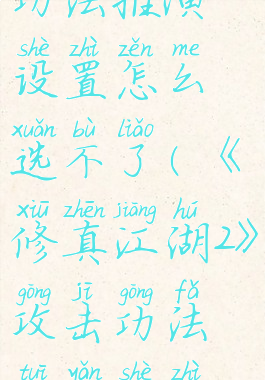 功法推演
shè zhì zěn me
设置怎么
xuǎn bù liǎo
选不了(《
xiū zhēn jiāng hú
修真江湖2》
gōng jī gōng fǎ
攻击功法
tuī yǎn shè zhì